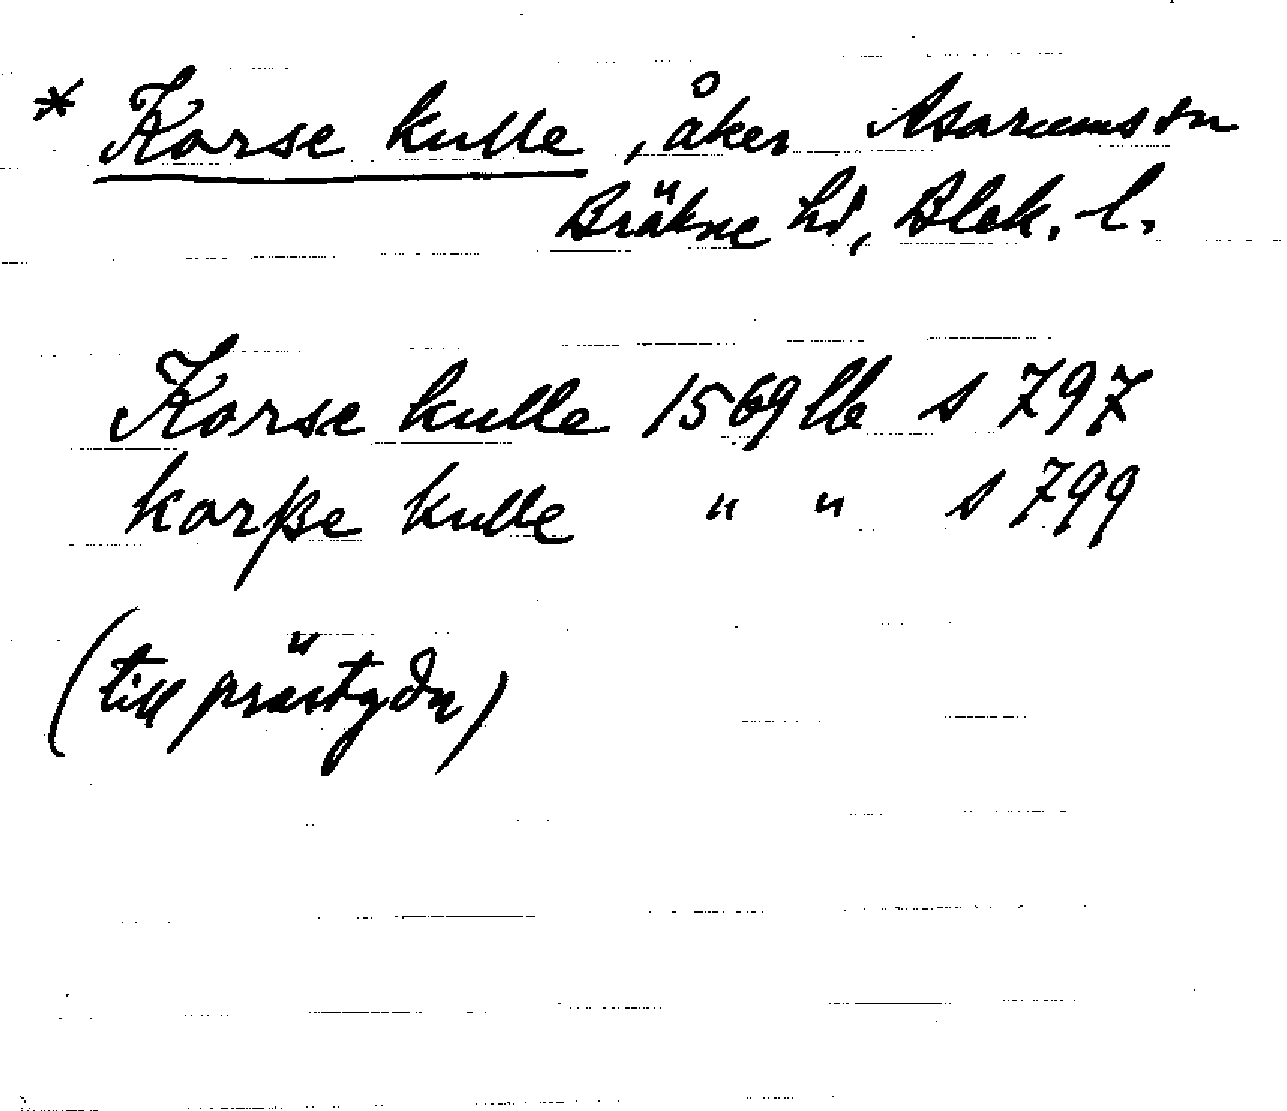 * Korse kulle, åker Asarums sn
Bräkne hd, Blek. l.
Korse kulle 1569 lb s 797
korße kulle " " s 799
(till prästgdn)